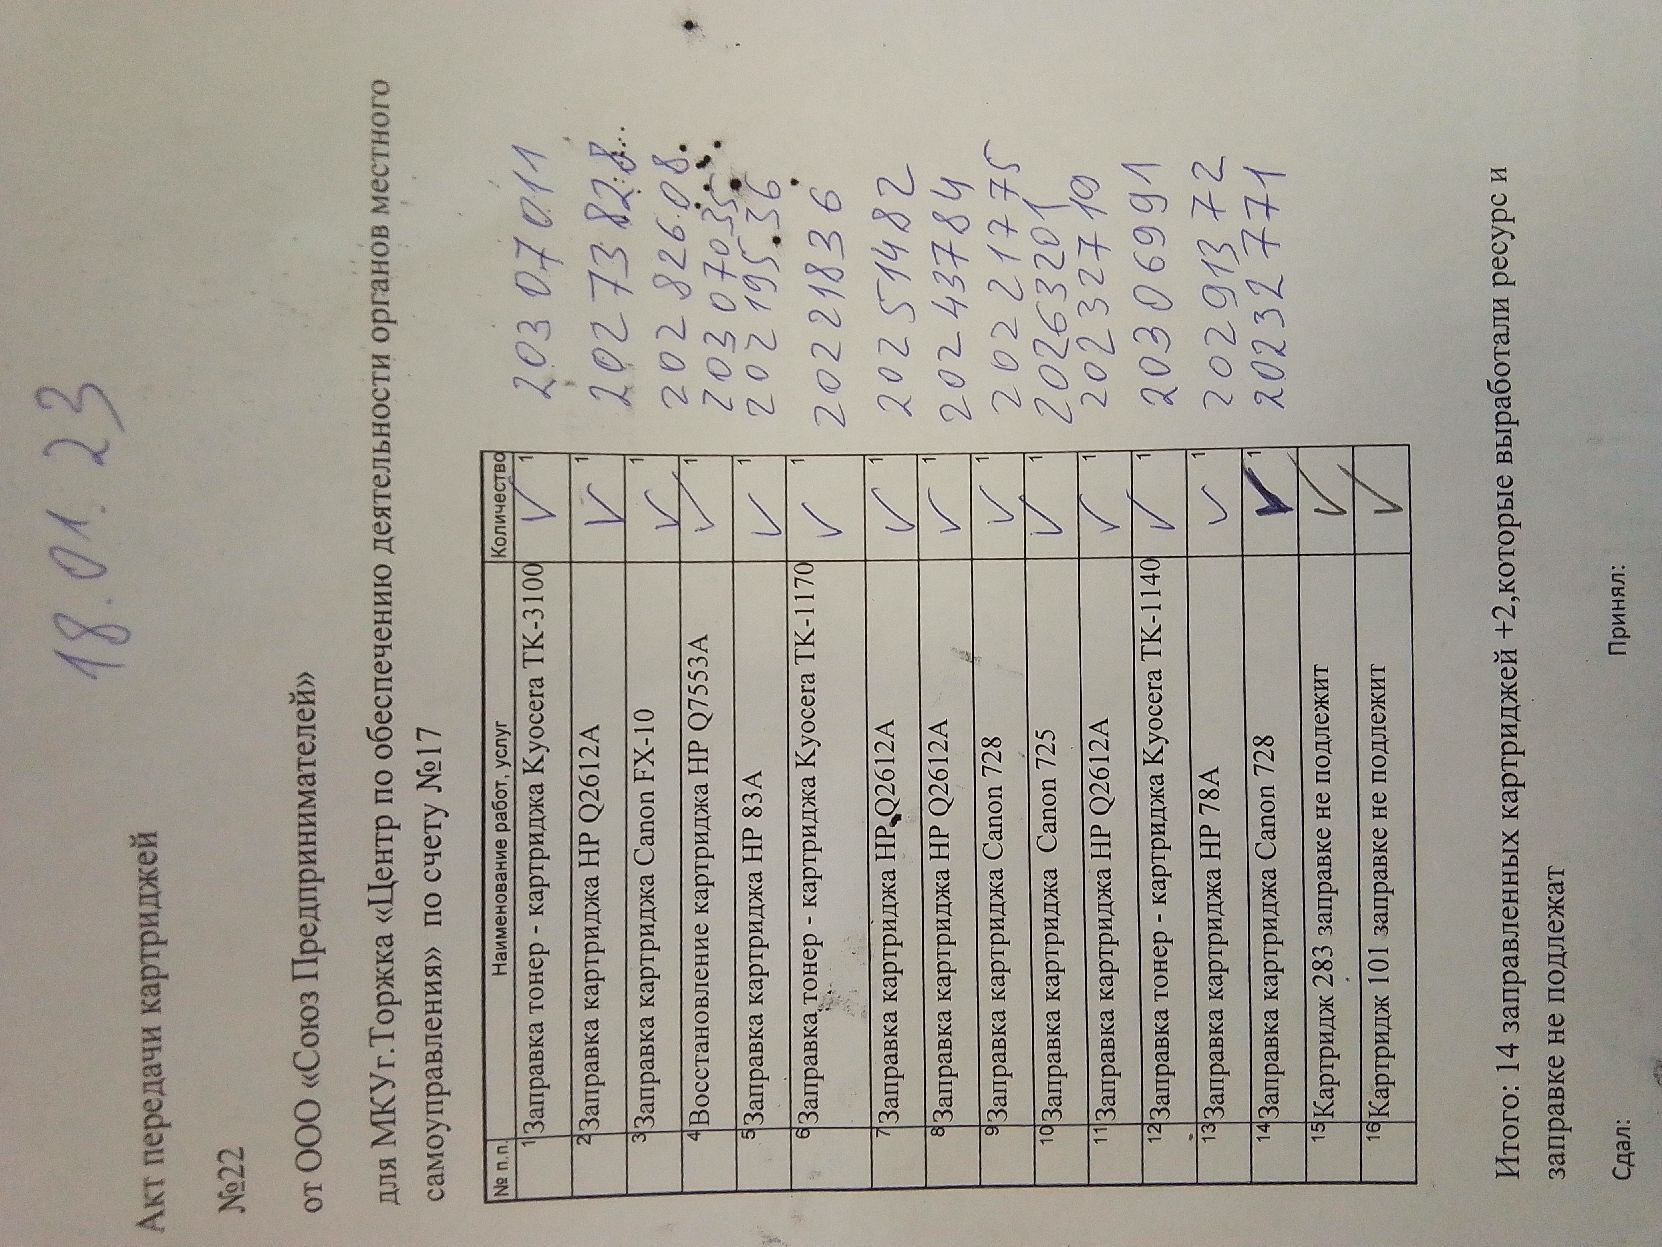 18.01.23
Акт передачи картриджей
№22
от ООО «Союз Предпринимателей»
для МКУг.Торжка «Центр по обеспечению деятельности органов местного
самоуправления» по счету №17
№ п.п. Наименование работ, услуг Количество
1 Заправка тонер - картриджа Kyocera TK-3100 1 20307011
2 Заправка картриджа HP Q2612A 1 20273828
3 Заправка картриджа Canon FX-10 1 20282608
4 Восстановление картриджа HP Q7553A 1 20307035
5 Заправка картриджа HP 83A 1 20219536
6 Заправка тонер - картриджа Kyocera TK-1170 1 20221836
7 Заправка картриджа HP Q2612A 1 20251482
8 Заправка картриджа HP Q2612A 1 20243784
9 Заправка картриджа Canon 728 1 20221775
10 Заправка картриджа Canon 725 1 20263201
11 Заправка картриджа HP Q2612A 1 20232719
12 Заправка тонер - картриджа Kyocera TK-1140 1 20306991
13 Заправка картриджа HP 78A 1 20291372
14 Заправка картриджа Canon 728 1 20232771
15 Картридж 283 заправке не подлежит
16 Картридж 101 заправке не подлежит
Итого: 14 заправленных картриджей +2,которые выработали ресурс и
заправке не подлежат
Сдал: Принял: